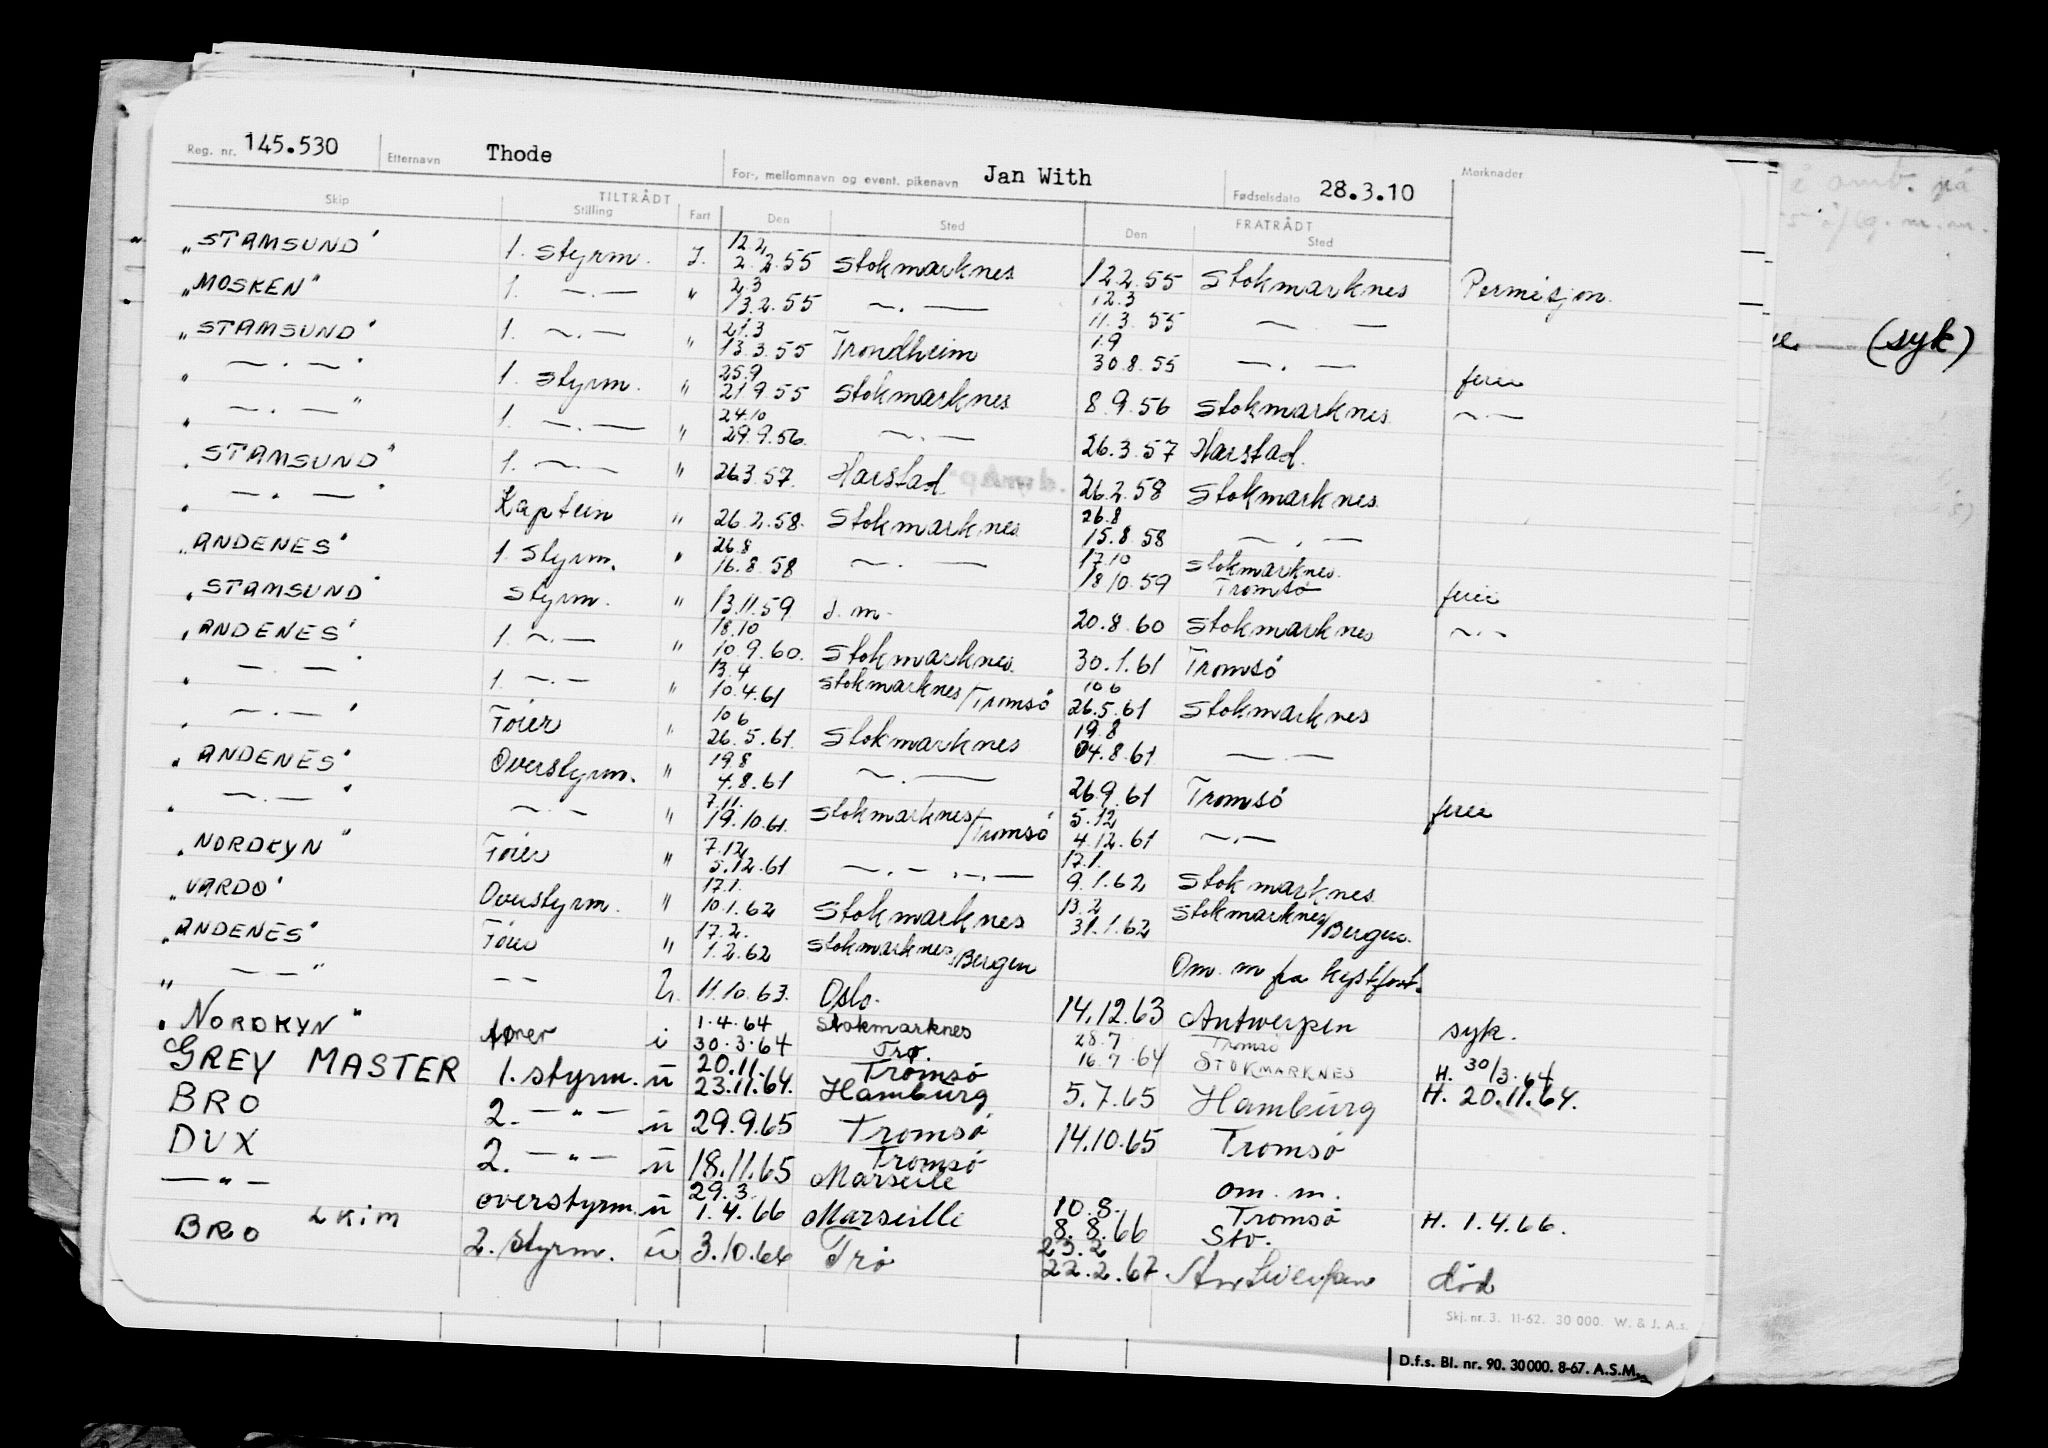 Reg. nr. 145.530 Etternavn Thode For-, mellomnavn og event. pikenavn Jan With Fødselsdato 28.3.10 Merknader
Skip TILTRÅDT Stilling Fart Den Sted Den FRATRÅDT Sted
"STAMSUND" 1. styrm. I. 12.2 2.2.55 Stokmarknes 12.2.55 Stokmarknes Permisjon.
"MOSKEN" 1. —.— " 2.3 13.2.55 —.— 12.3 11.3.55 — —
"STAMSUND" 1. —.— " 21.3 13.3.55 Trondheim 1.9 30.8.55 —.— ferie
" —.— " 1. styrm. " 25.9 21.9.55 Stokmarknes 8.9.56 Stokmarknes —.—
" —.— " 1. —.— " 24.10 29.9.56. —.— 26.3.57 Harstad.
"STAMSUND" 1. —.— " 26.3.57. Harstad. 26.2.58 Stokmarknes
" —.— " Kaptein " 26.2.58. Stokmarknes 26.8 15.8.58 —.—
"ANDENES" 1. styrm. " 26.8 16.8.58 —.— 17.10 18.10.59 Stokmarknes. Tromsö ferie
"STAMSUND" styrm. " 13.11.59 s.m. 20.8.60 Stokmarknes —.—
"ANDENES" 1. —.— " 18.10 10.9.60. Stokmarknes. 30.1.61 Tromsö
" —.— " 1. —.— " 13.4 10.4.61 Stokmarknes/Tromsö 10.6 26.5.61 Stokmarknes
" —.— " Fører " 10.6 26.5.61. Stokmarknes 19.8 04.8.61 — —
"ANDENES" Overstyrm. " 19.8 4.8.61 —.— 26.9.61 Tromsö ferie
" —.— " —.— " 7.11. 19.10.61. Stokmarknes/Tromsö 5.12 4.12.61 —.—
"NORDKYN" Fører " 7.12 5.12.61 —.— —.— 17.1. 9.1.62 Stokmarknes
"VARDØ" Overstyrm. " 17.1. 10.1.62 Stokmarknes 13.2 31.1.62 Stokmarknes/Bergen.
"ANDENES" Fører " 17.2. 1.2.62 Stokmarknes/Bergen Om. m fra kystfart.
" — — " — — U. 11.10.63. Oslo. 14.12.63 Antwerpen syk.
"NORDKYN" fører i 1.4.64 30.3.64 Stokmarknes Trø. 28.7 16.7.64 Tromsö STOKMARKNES H. 30/3.64
GREY MASTER 1. styrm. u 20.11. 23.11.64. Tromsö Hamburg 5.7.65 Hamburg H. 20.11.64.
BRO 2. —"— u 29.9.65 Tromsö 14.10.65 Tromsö
DUX 2. —"— u 18.11.65 Tromsö Marseille om. m.
—"— overstyrm. u 29.3. 1.4.66 Marseille 10.8. 8.8.66 Tromsö Sto. H. 1.4.66.
BRO EKIM 2. styrm. u 3.10.66 Trö 23.2 22.2.67 død
Skj. nr. 3. 11-62. 30 000. W. & J. A.s.
D.f.s. Bl. nr. 90. 30 000. 8-67. A.S.M.
(syk)